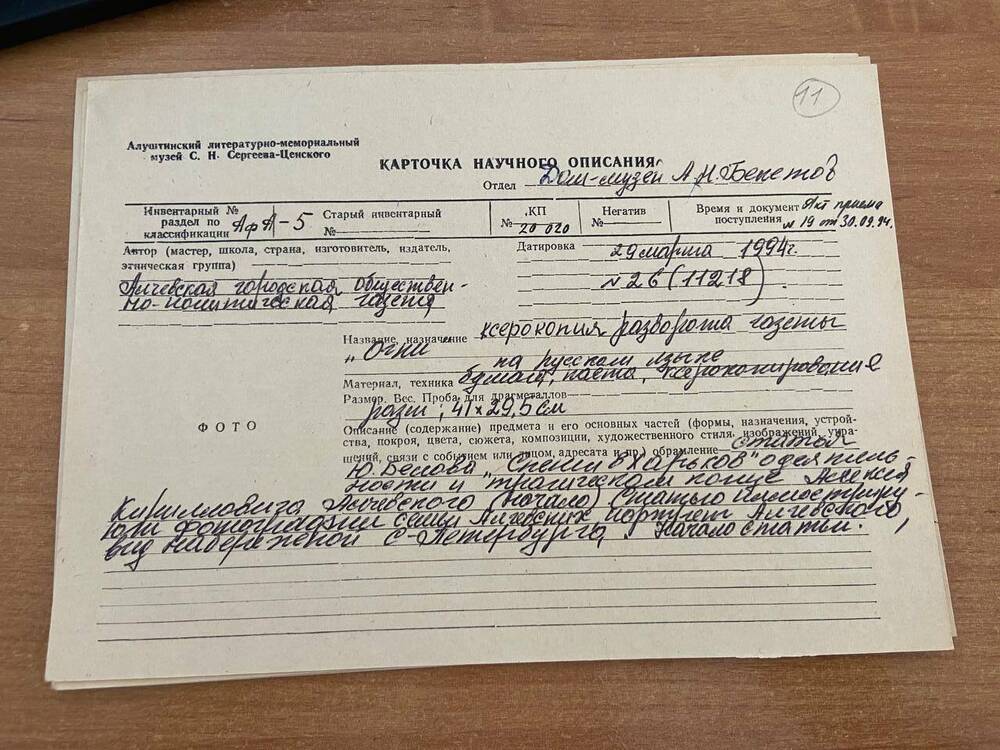 11
Алуштинский литературно-мемориальный
музей С. Н. Сергеева-Ценского
КАРТОЧКА НАУЧНОГО ОПИСАНИЯ
Отдел Дом-музей А.Н. Бекетов
Инвентарный №
раздел по
классификации АфА-5
Старый инвентарный
№
КП
№ 20 020
Негатив
№
Время и документ Акт приема
поступления № 19 от 30.09.94.
Автор (мастер, школа, страна, изготовитель, издатель,
этническая группа)
Алчевская городская обществен-
но-политическая газета
Датировка 29 марта 1994г.
№ 26 (11218)
Название, назначение ксерокопия разворота газеты
"Огни" на русском языке
Материал, техника бумага, паста, ксерокопирование
Размер. Вес. Проба для драгметаллов
разм; 41 х 29,5 см
ФОТО
Описание (содержание) предмета и его основных частей (формы, назначения, устрой-
ства, покроя, цвета, сюжета, композиции, художественного стиля, изображений, укра-
щений, связи с событием или лицом, адресата и пр.) обрамление статья
Ю. Белова "Спеши в Харьков" о деятель-
ности и трагическом конце Алексея
Кирилловича Алчевского (начало) Статью иллюстриру-
ют фотографии семьи Алчевских портрет Алчевского,
вид набережной С-Петербурга, Начало статьи.